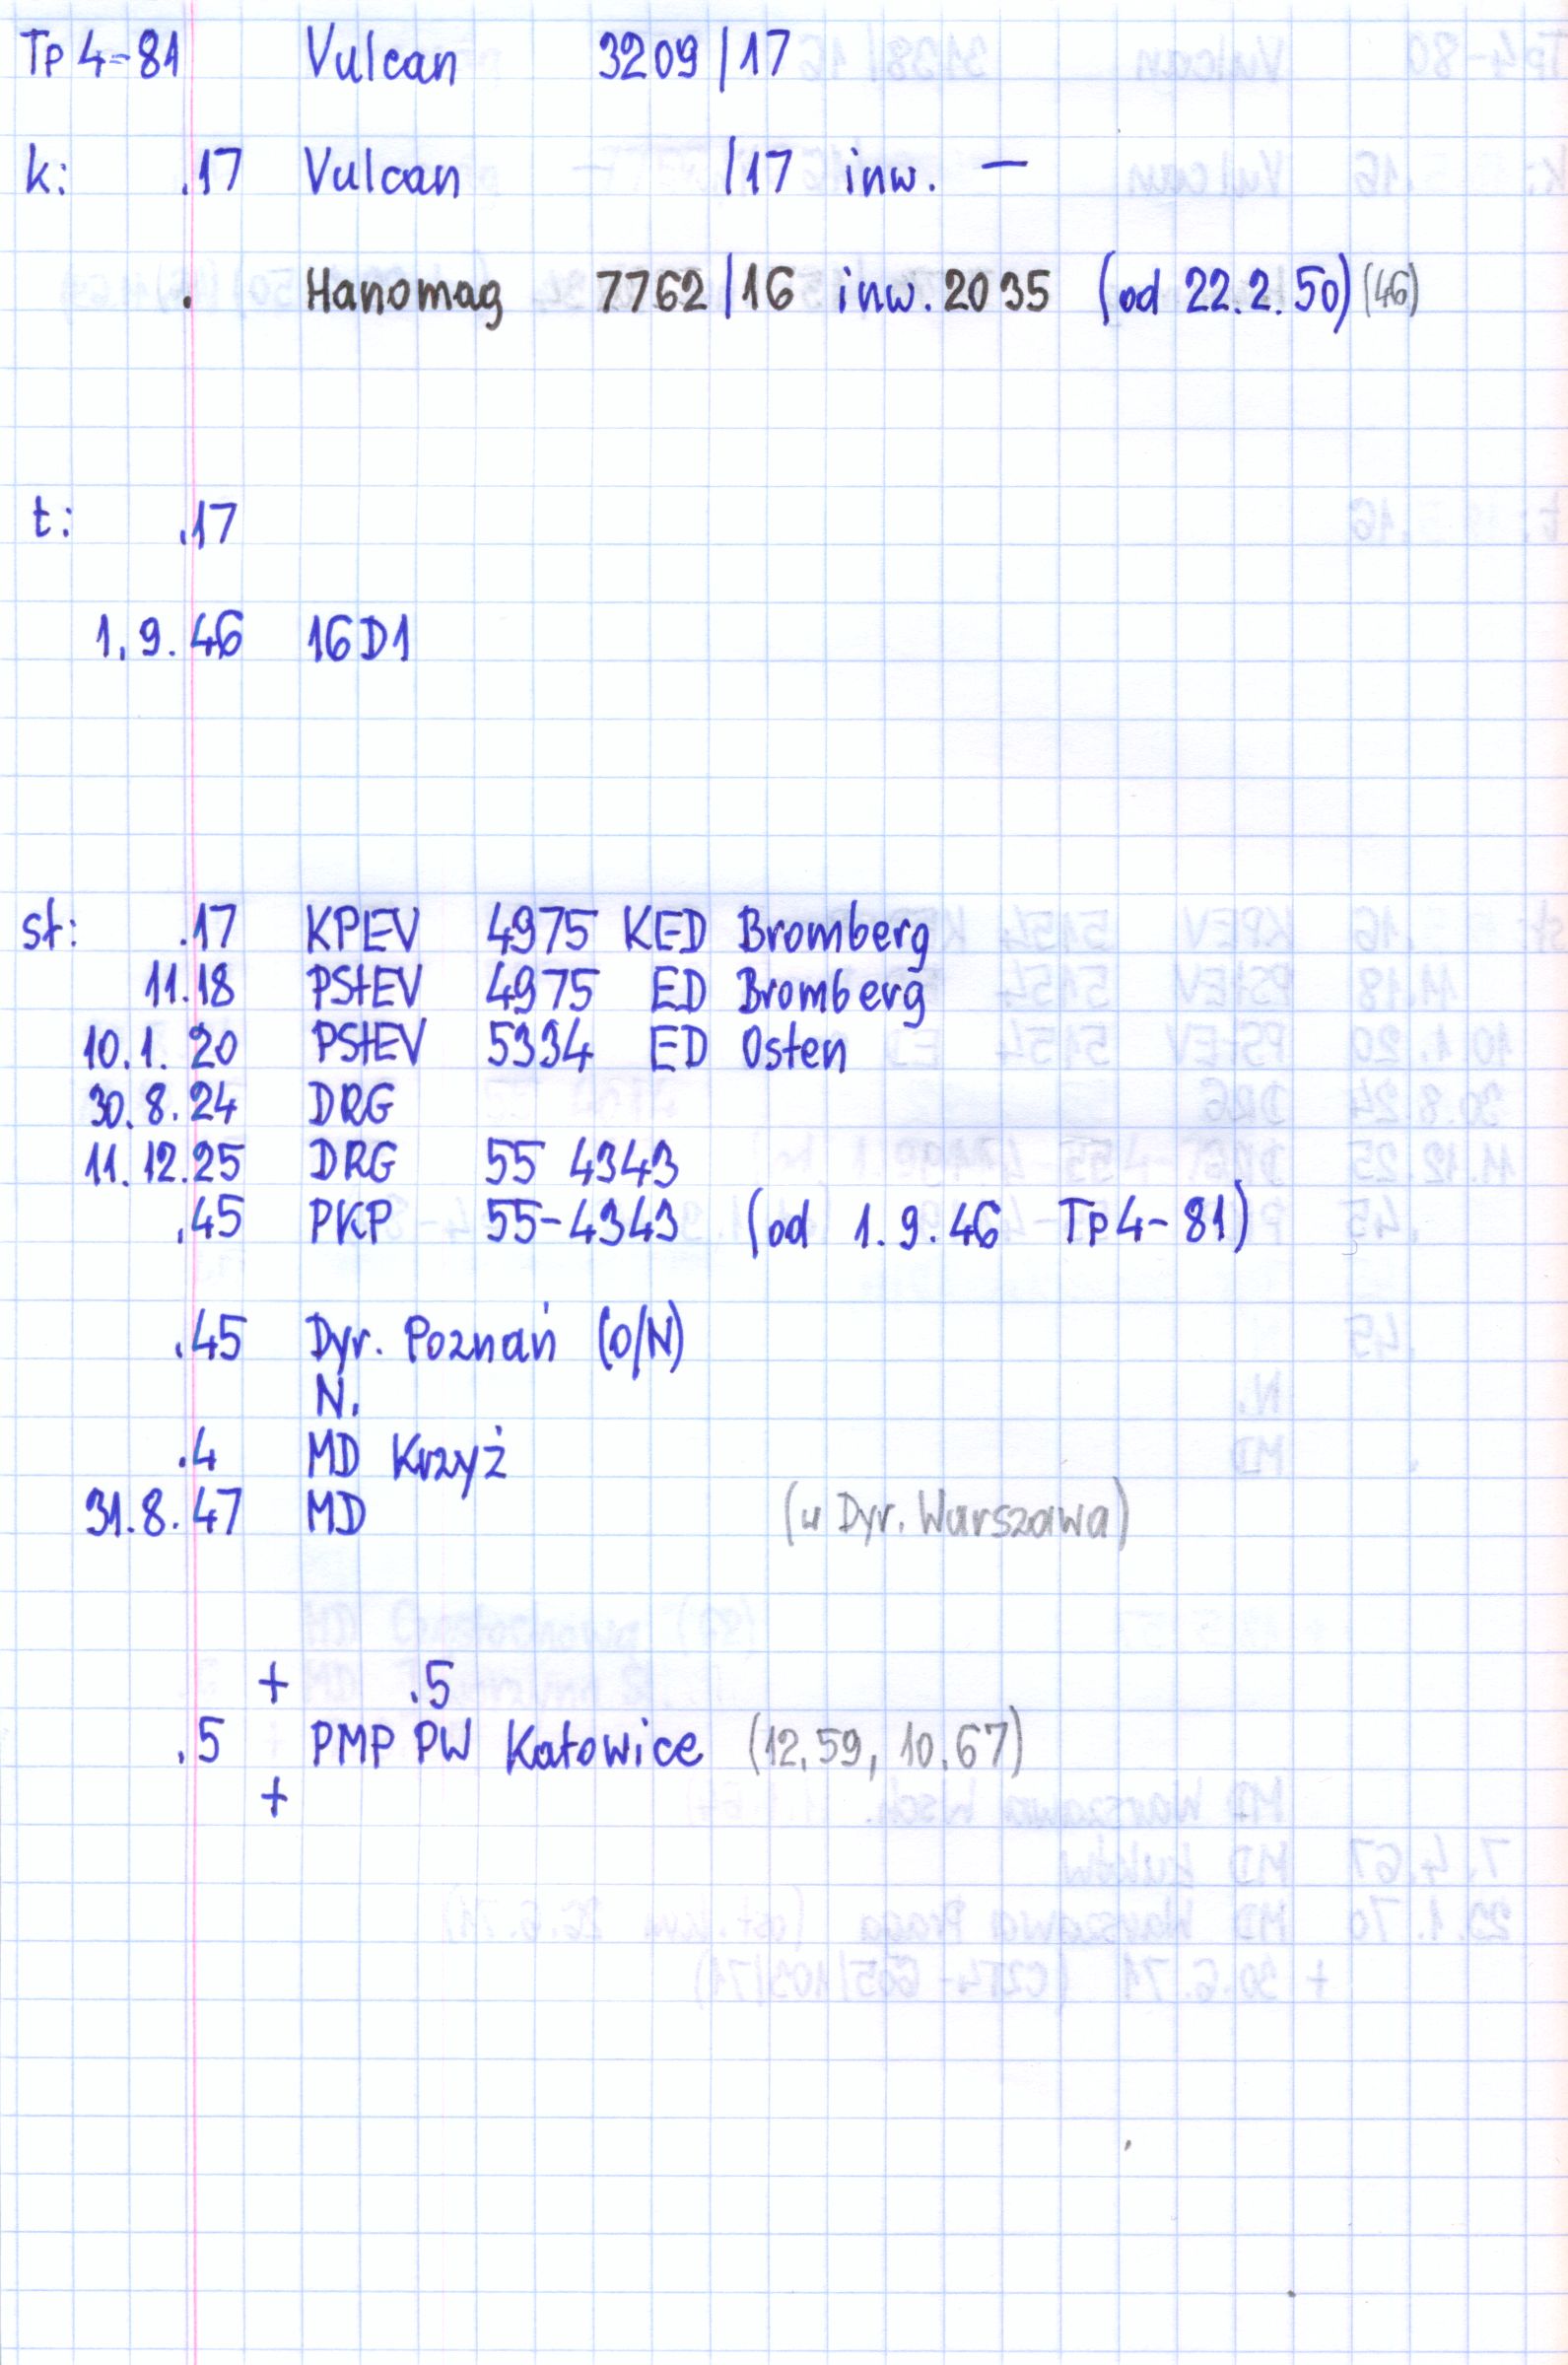 Tp 4-81 Vulcan 3209/17
k: .17 Vulcan /17 inw. —
. Hanomag 7762/16 inw. 2035 (od 22.2.50) (46)
t: .17
1.9.46 16D1
st: .17 KPEV 4975 KED Bromberg
11.18 PStEV 4975 ED Bromberg
10.1.20 PStEV 5334 ED Osten
30.8.24 DRG
11.12.25 DRG 55 4343
.45 PKP 55-4343 (od 1.9.46 Tp4-81)
.45 Dyr. Poznań (O/N)
N.
.4 MD Krzyż
31.8.47 MD (w Dyr. Warszawa)
+ .5
.5 PMP PW Katowice (12.59, 10.67)
+